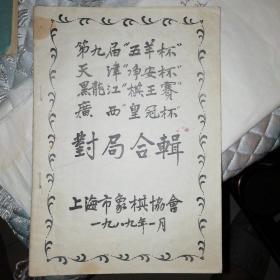 第九届"五羊杯"
天津"净安杯"
黑龍江"棋王赛"
廣西"皇冠杯"
對局合輯
上海市象棋協會
一九八九年一月